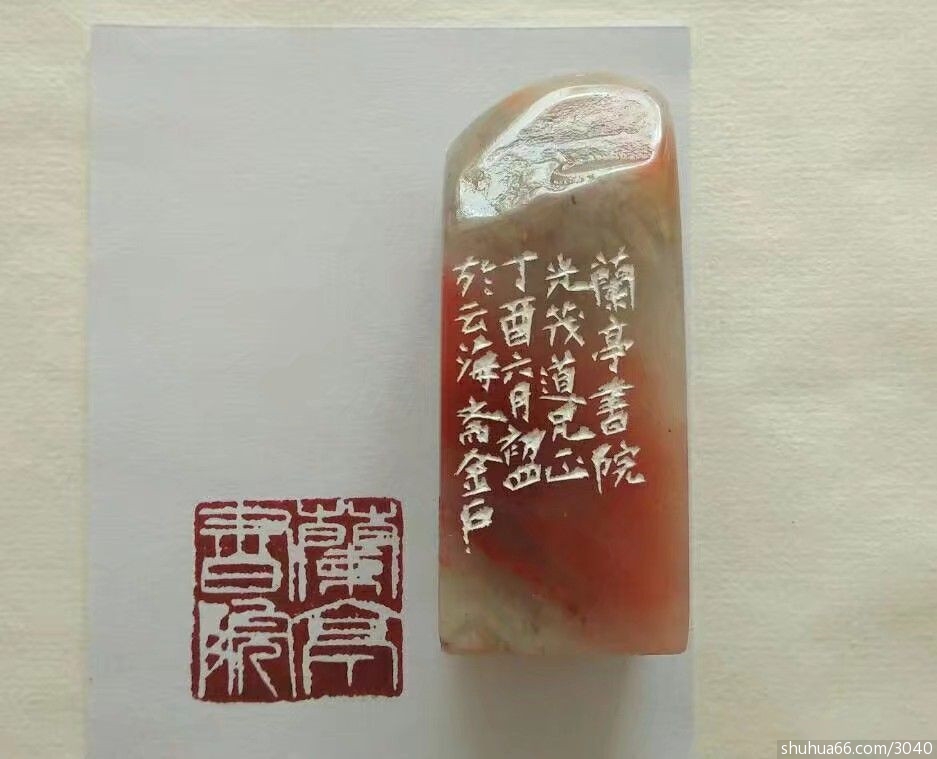 蘭亭書院
光道兄正
丁酉六月初四
於云海斋金石
蘭亭
書院
shuhua66.com/3040